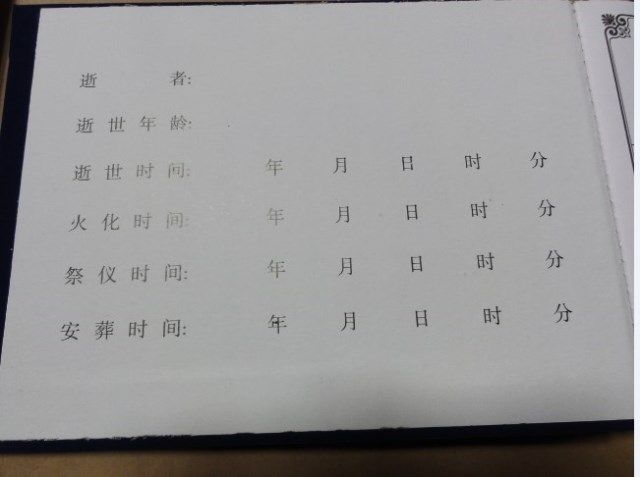 逝者:
逝世年龄:
逝世时间: 年 月 日 时 分
火化时间: 年 月 日 时 分
祭仪时间: 年 月 日 时 分
安葬时间: 年 月 日 时 分